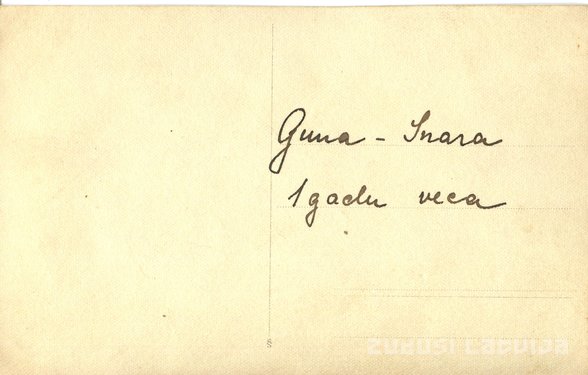 Guna - Inara
1 gadu veca
§
zudusi Latvija